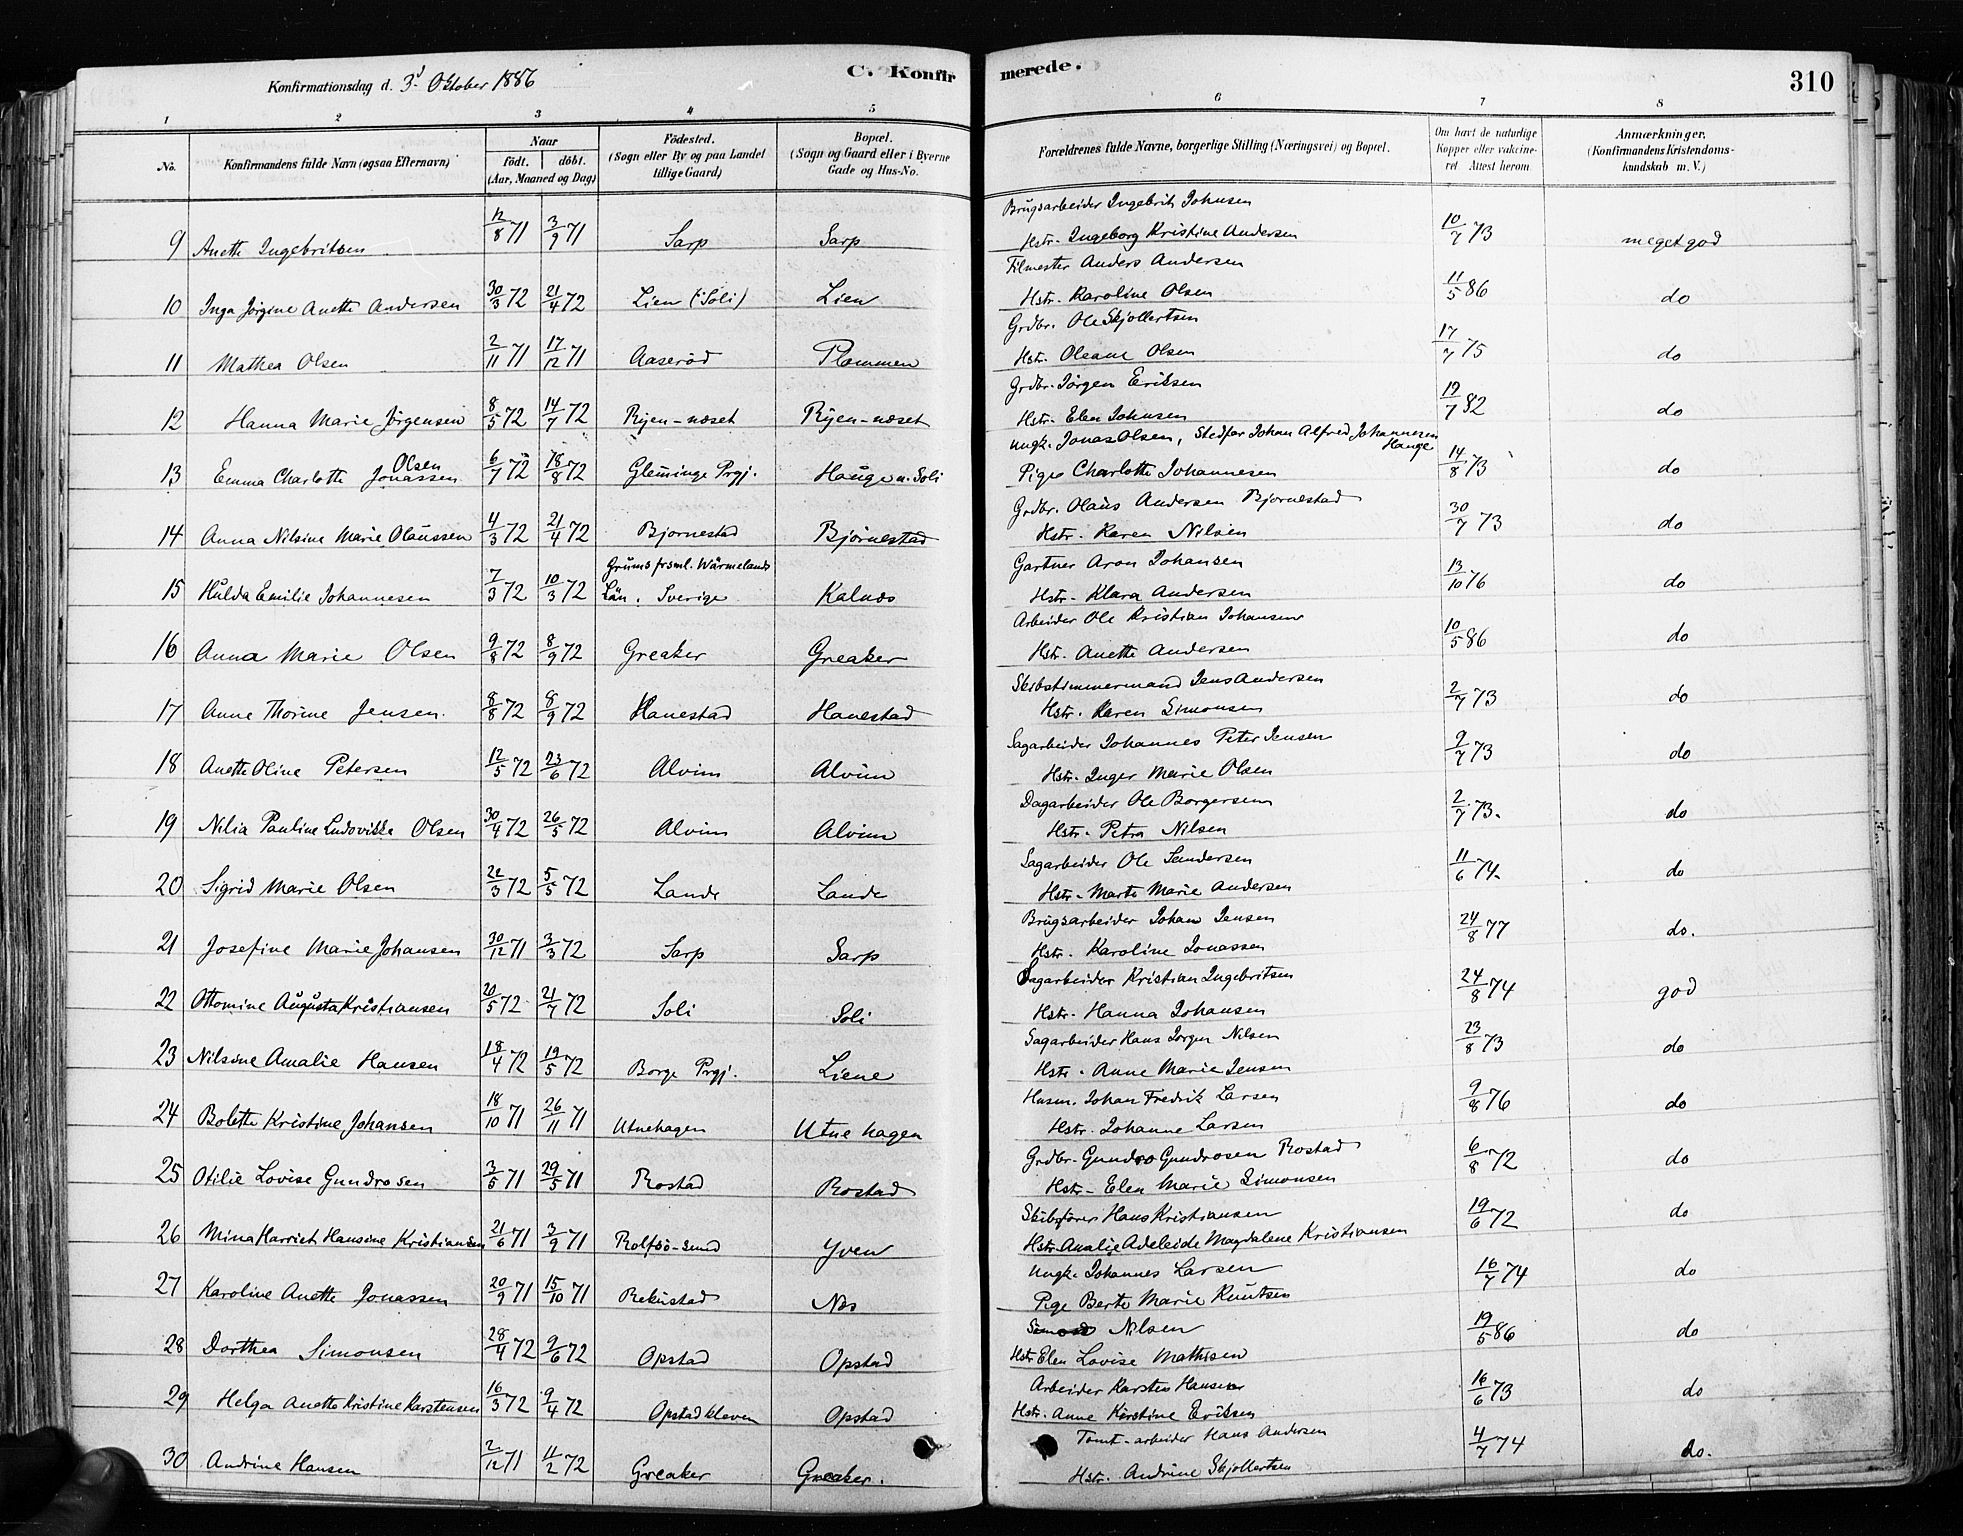 Konfirmationsdag d. 3d Oktober 1886
C. Konfirmerede.
310
1 2 3 4 5 6 7 8
No. Konfirmandens fulde Navn (ogsaa Efternavn) Naar födt. döbt. (Aar, Maaned og Dag) Födested. (Sogn eller By og paa Landet tillige Gaard) Bopæl. (Sogn og Gaard eller i Byerne Gade og Hus-No. Forældrenes fulde Navne, borgerlige Stilling (Næringsvei) og Bopæl. Om havt de naturlige Kopper eller vakcineret Attest herom Anmærkninger. (Konfirmandens Kristendomskundskab m. V.)
Brugsarbeider Ingebrit Johnsen
9 Anette Ingebritsen 12/8 71 3/9 71 Sarp Sarp Hstr. Ingeborg Kristine Andersen 10/7 73 meget god
Filmester Anders Andersen
10 Inga Jörgine Anette Andersen 30/3 72 21/4 72 Lien (Soli) Lien Hstr. Karoline Olsen 11/5 86 do
Grdbr. Ole Skjollertsen
11 Mathea Olsen 2/11 71 17/12 71 Aaseröd Plommen Hstr. Oleane Olsen 17/7 75 do
Grdbr. Jörgen Eriksen
12 Hanna Marie Jörgensen 8/5 72 14/7 72 Ryen-næset Ryen-næset Hstr. Elen Johnsen 19/7 82 do
Ungk. Jonas Olsen, Stedfar Johan Alfred Johannesen Hauge
13 Emma Charlotte Jonassen Olsen 6/7 72 18/8 72 Glemminge Prgj. Hauge u. Soli Pige Charlotte Johannesen 14/8 73 do
Grdbr. Olaus Andersen Bjornestad
14 Anna Nilsine Marie Olaussen 4/3 72 21/4 72 Bjornestad Bjørnestad Hstr. Karen Nilsen 30/7 73 do
Grums frsml. Wärmelands Gartner Aron Johansen
15 Hulda Emilie Johannesen 7/3 72 10/3 72 Län. Sverige Kalnæs Hstr. Klara Andersen 13/10 76 do
Arbeider Ole Kristian Johansen
16 Anna Marie Olsen 9/8 72 8/9 72 Greaker Greaker Hstr. Anette Andersen 10/5 86 do
Skibstimmermand Jens Andersen
17 Anne Thorine Jensen. 8/8 72 8/9 72 Hanestad Hanestad Hstr. Karen Simonsen 2/7 73 do
Sagarbeider Johannes Peter Jensen
18 Anette Oline Petersen 12/5 72 23/6 72 Alvim Alvim Hstr. Inger Marie Olsen 9/7 73 do
Dagarbeider Ole Borgersen
19 Nilia Pauline Ludovikka Olsen 30/4 72 26/5 72 Alvim Alvim Hstr. Petra Nilsen 2/7 73. do
Sagarbeider Ole Sendersen
20 Sigrid Marie Olsen 22/3 72 5/5 72 Lande Lande Hstr. Marte Marie Andersen 11/6 74. do
Brugsarbeider Johan Jensen
21 Josefine Marie Johansen 30/12 71 3/3 72 Sarp Sarp Hstr. Karoline Jonassen 24/8 77 do.
Sagarbeider Kristian Ingebritsen
22 Ottomine Augusta Kristiansen 20/5 72 21/7 72 Soli Soli Hstr. Hanna Johansen 24/8 74 god
Sagarbeider Hans Jorgen Nilsen
23 Nilsine Amalie Hansen 18/4 72 19/5 72 Borge Prgj. Liene Hstr. Anne Marie Jensen 23/8 73 do
Husm. Johan Fredrik Larsen
24 Bolette Kristine Johansen 18/10 71 26/11 71 Utnehagen Utnehagen Hstr. Johanne Larsen 9/8 76 do
Grdbr. Gundro Gundrosen Rostad
25 Otilie Lovise Gundrosen 3/5 71 29/5 71 Rostad Rostad Hstr. Elen Marie Simonsen 6/8 72 do
Skibsförer Hans Kristiansen
26 Mina Harriet Hansine Kristiansen 21/6 71 3/9 71 Rolfsö-sund Yven Hstr. Amalie Adeleide Magdalene Kristiansen 19/6 72 do
Ungk. Johannes Larsen
27 Karoline Anette Jonassen 20/9 71 15/10 71 Rekustad Næs Pige Berte Marie Knutsen 16/7 74 do
Nilsen
28 Dorthea Simonsen 28/4 72 9/6 72 Opstad Opstad Hstr Elen Lovise Mathisen 19/5 86 do
Arbeider Karsten Hansen
29 Helga Anette Kristine Karstensen 16/3 72 9/4 72 Opstadkleven Opstad Hstr. Anne Kirstine Eriksen 16/6 73 do
Tomt-arbeider Hans Andersen
30 Andrine Hansen 2/12 71 11/2 72 Greaker Greaker. Hstr. Andrine Skjollertsen 4/7 74 do.